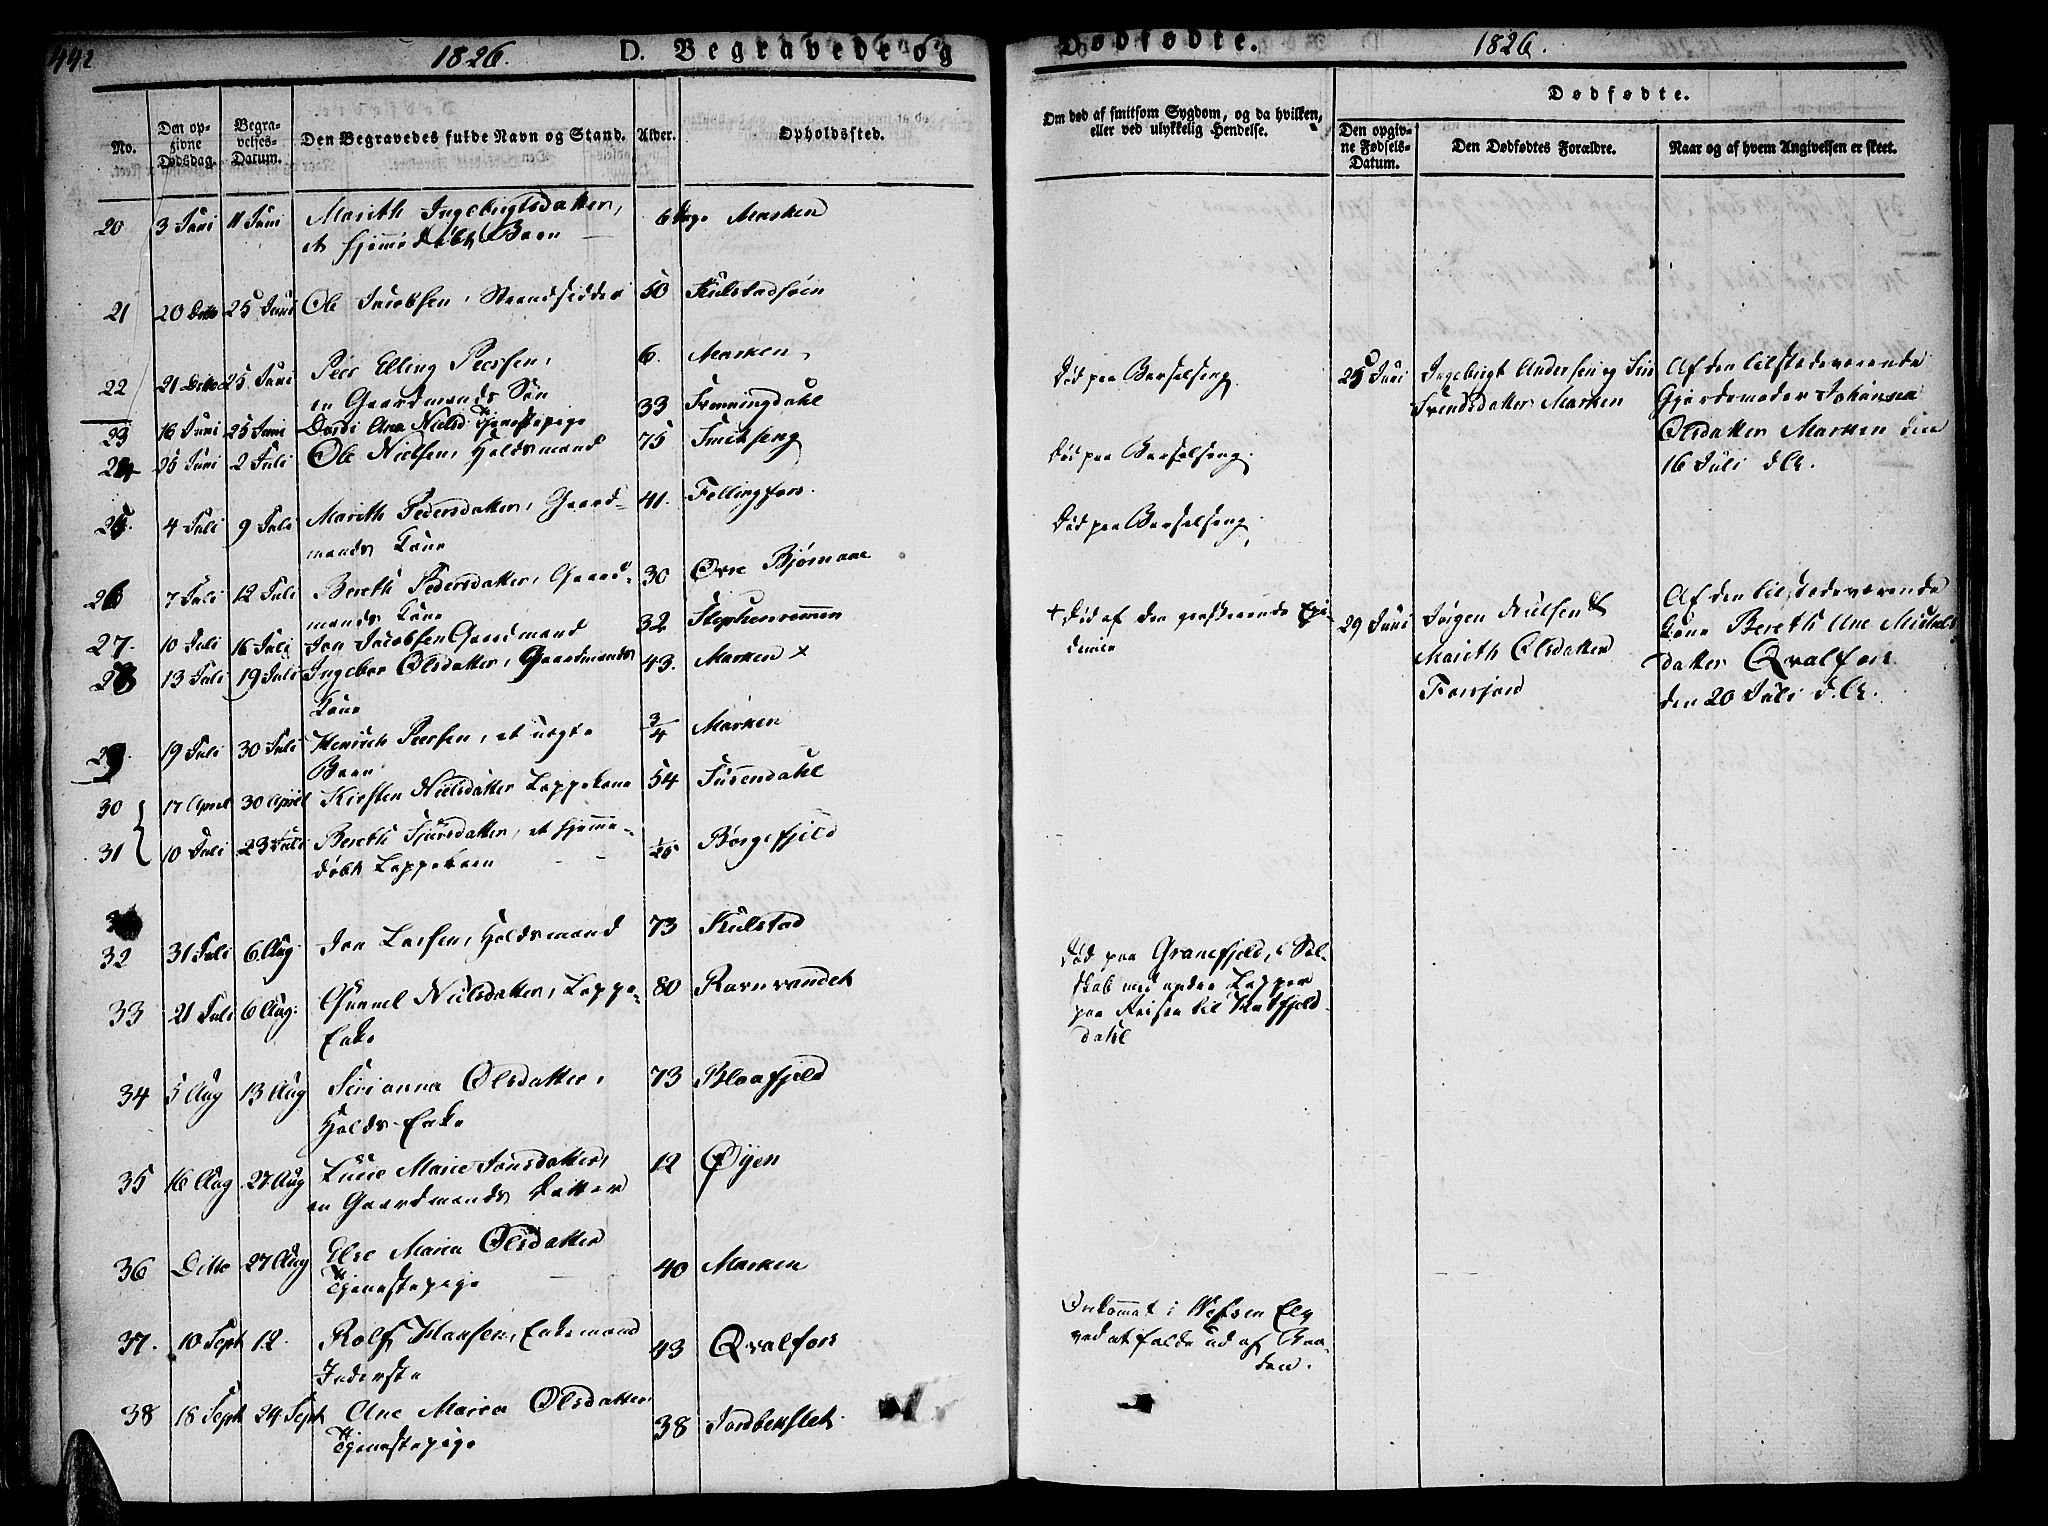 442
1826.
D. Begravede og
No.
Den opgivne Dødsdag.
Begravelses-Datum.
Den Begravedes fulde Navn og Stand.
Alder.
Opholdssted.
20 3 Juni 11 Juni Marith Ingebrigtsdatter, 6 Dage Marken
et hjemmedøbt Barn
21 20 Ditto 25 Juni Ole Jacobsen, Strandsidder 50 Kulstadsøen
22 21 Ditto 25 Juni Peer Elling Peersen, 6. Marken
en Gaardmands Søn
23 16 Juni 25 Juni Ana Nielsd Tjenestepige 33 Svenningdahl
24 25 Juni 2 Juli Ole Nielsen, Holdsmand 75 Smedseng
25. 4 Juli 9 Juli Marith Pedersdatter, Gaard- 41. Fellingfors.
mands Kone
26 7 Juli 12 Juli Bereth Pedersdatter, Gaard- 30 Øvre Bjørnaae
mands Kone
27. 10 Juli 16 Juli Jon Jacobsen Gaardmand 32 Stephenremmen
28 13 Juli 19 Juli Ingebor Olsdatter, Gaardmands 43. Marken x
Kone
29. 19 Juli 30 Juli Henrich Peersen, et uægte 3/4 Marken
Barn
30 17 April 30 April Kirsten Nielsdatter Lappekone 54 Susendahl
31 10 Juli 23 Juli Bereth Sjursdatter, et hjemme- 1/25 Børgefjeld
døbt Lappebarn
32 31 Juli 6 Aug Jon Larsen, Holdsmand 73 Kulstad
33 21 Juli 6 Aug: Gunnel Nielsdatter, Lappe- 80 Ravnvandet
Enke
34 5 Aug 13 Aug Sirianna Olsdatter, 73 Blaafjeld
Holds-Enke
35 16 Aug. 27 Aug Lucie Marie Jonsdatter, 12 Øyen
en Gaardmands Datter
36 Ditto 27 Aug Else Maria Olsdatter 40 Marken
Tjenestepige
37. 10 Sept 12. Rolf Hansen, Enkemand 43 Qvalfors
Inderste
38 18 Sept 24 Sept Ane Maria Olsdatter 38 Jordbekslet
Tjenestepige
Dødfødte.
1826.
Om død af smitsom Sygdom, og da hvilken,
eller ved ulykkelig Hendelse.
Dødfødte.
Den opgivne Fødsels-Datum.
Den Dødfødtes Forældre.
Naar og af hvem Angivelsen er skeet.
Død paa Barselseng.
Død paa Barselseng.
Død paa Barselseng.
+ Død af den grasserende Epi-
demie
Død paa Granefjeld, i Sel-
skab med andre Lapper
paa Reisen til Hatfjeld-
dahl
Omkommet i Vefsen Elv
ved at falde ud af Baa-
den.
25 Juni Ingebrigt Andersen og Siri
Svendsdatter Marken
Af den tilstedeværende
Gjordemoder Johanna
Olsdatter Marken den
16 Juli d.A.
29 Juni Jørgen Nielsen &
Marith Olsdatter
Forsjord
Af den tilstedeværende
Kone Bereth Ane Michels
datter Qvalfors
den 20 Juli d.A.